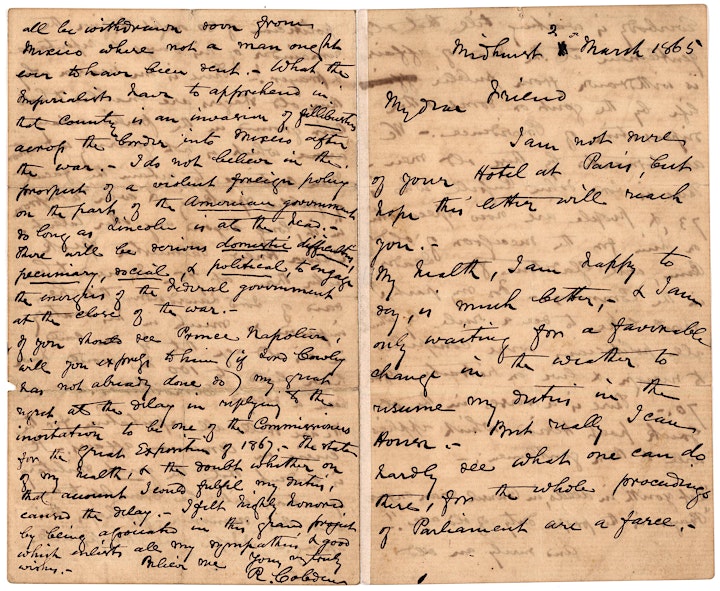 Midhurst 2 March 1865
My dear Friend
I am not sure
of your Hotel at Paris, but
hope this letter will reach
you.-
My health, I am happy to
say, is much better,- & I am
only waiting for a favorable
change in the weather to
resume my duties in the
House.- But really I can
hardly see what one can do
there, for the whole proceedings
of Parliament are a farce.-
all be withdrawn soon from
Mexico where not a man ought
ever to have been sent.- What the
Imperialists have to apprehend in
that country is an invasion of fillibusters
across the border into Mexico after
the war.- I do not believe in the
prospect of a violent foreign policy
on the part of the American government
so long as Lincoln is at the head.-
There will be serious domestic difficulties,
pecuniary, social, & political, to engage
the energies of the Federal government
at the close of the war.-
If you should see Prince Napoleon,
will you express to him (if Lord Cowley
has not already done so) my great
regret at the delay in replying to the
invitation to be one of the Commissioners
for the Great Exposition of 1867.- The state
of my health, & the doubt whether on
that account I could fulfil my duties,
caused the delay.- I felt highly honored
by being associated in this grand project
which enlists all my sympathies & good
wishes.- Believe me Yours very truly
R. Cobden